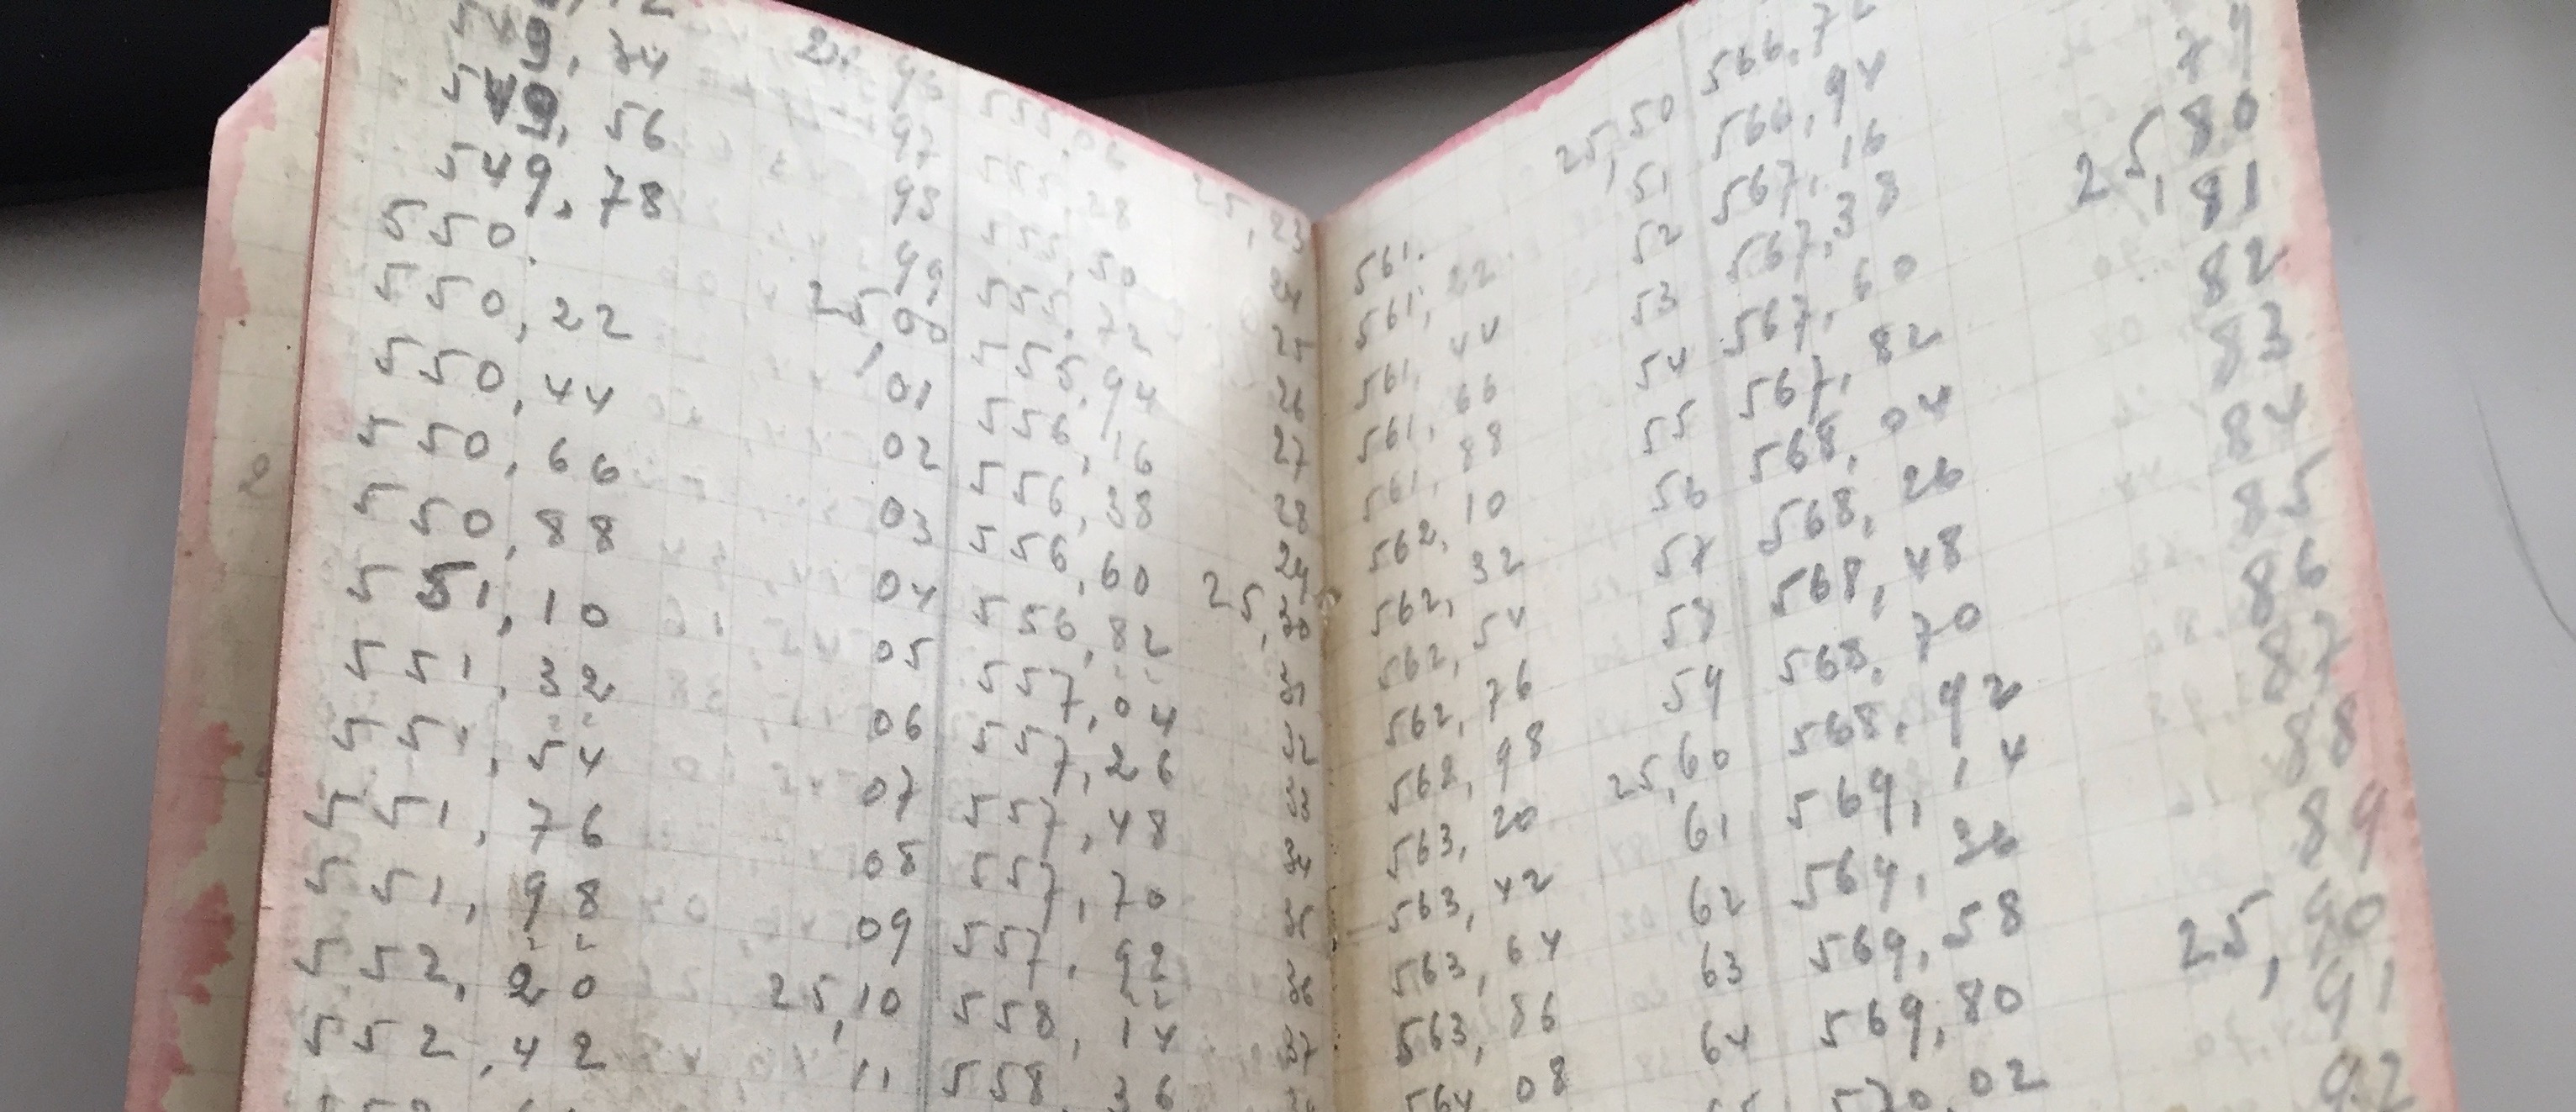 549,34 97 555,28 24
549,56 98 555,50 25
549,78 99 555,72 26
550. 25,00 555,94 27
550,22 01 556,16 28
550,44 02 556,38 29
550,66 03 556,60 25,30
550,88 04 556,82 31
551,10 05 557,04 32
551,32 06 557,26 33
551,54 07 557,48 34
551,76 08 557,70 35
551,98 09 557,92 36
552,20 25,10 558,14 37
552,42 11 558,36
561. 25,50 566,72
561,22 51 566,94
561,44 52 567,16
561,66 53 567,38 79
561,88 54 567,60 25,80
562,10 55 567,82 81
562,32 56 568,04 82
562,54 57 568,26 83
562,76 58 568,48 84
562,98 59 568,70 85
563,20 25,60 568,92 86
563,42 61 569,14 87
563,64 62 569,36 88
563,86 63 569,58 89
564,08 64 569,80 25,90
570,02 91
92